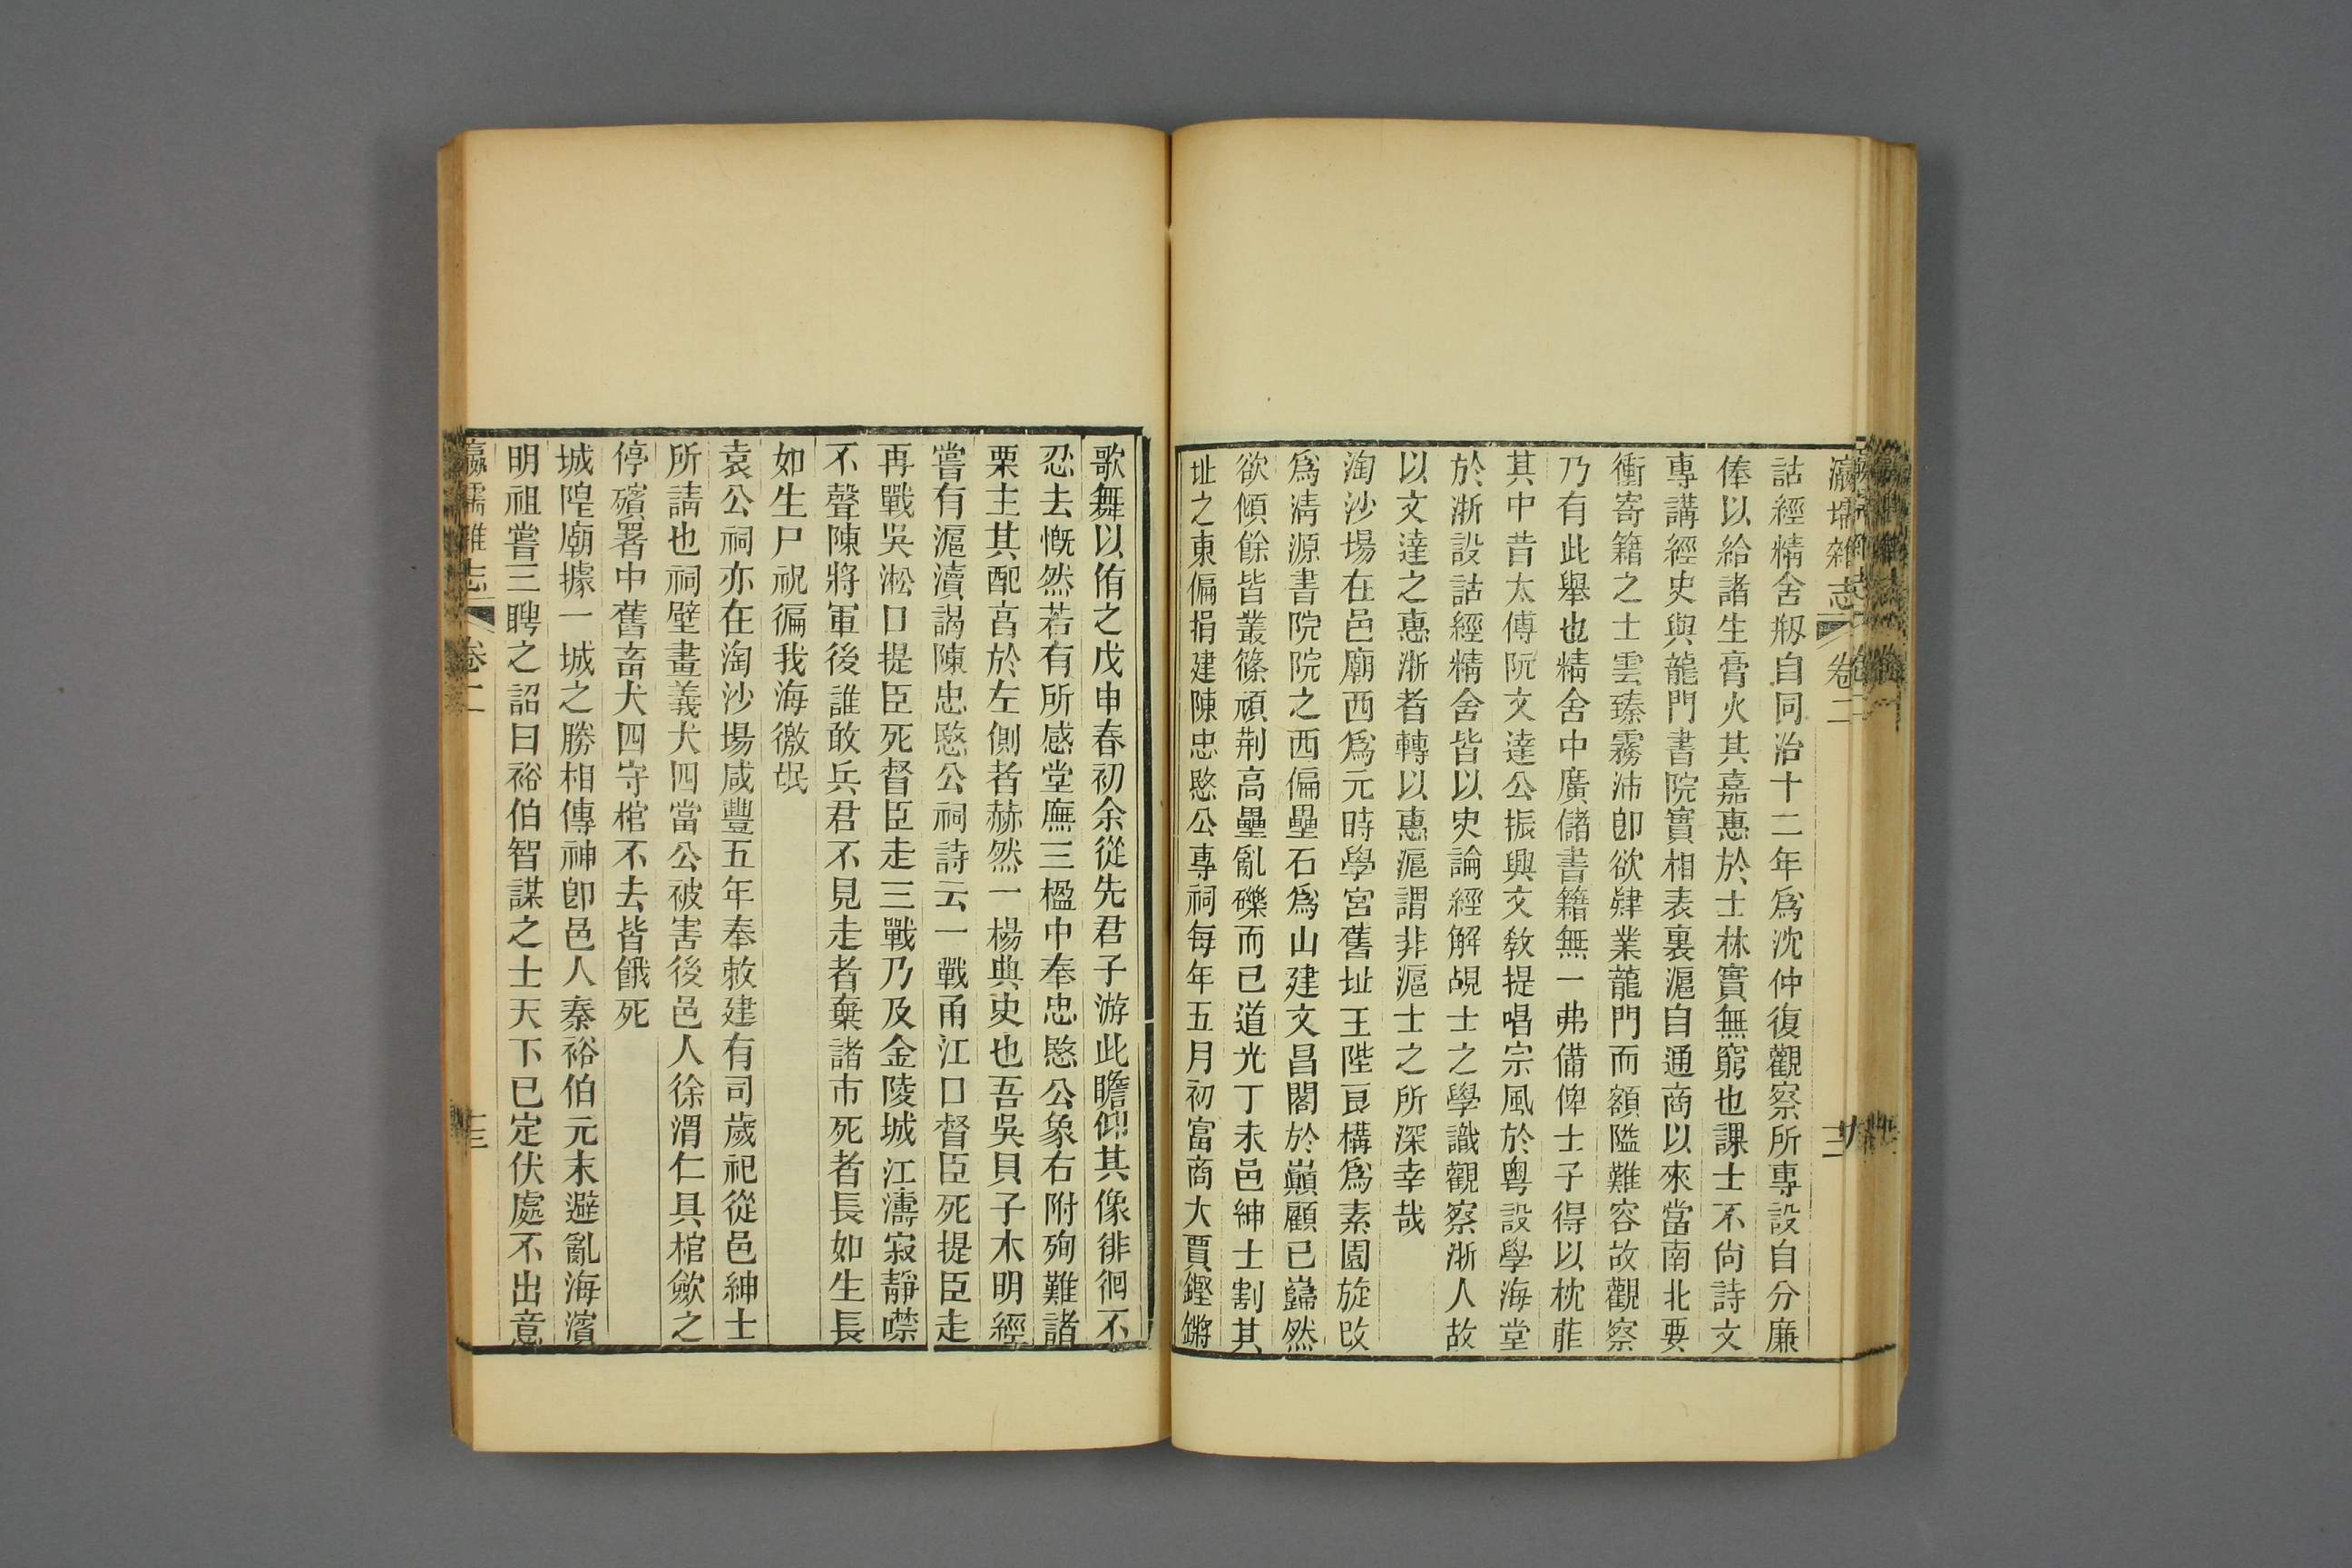 瀛壖雜志 卷二 二
詁經精舍剏自同治十二年爲沈仲復觀察所專設自分廉
俸以給諸生膏火其嘉惠於士林實無窮也課士不尙詩文
專講經史與龍門書院實相表裏滬自通商以來當南北要
衝寄籍之士雲臻霧沛卽欲肄業龍門而額隘難容故觀察
乃有此舉也精舍中廣儲書籍無一弗備俾士子得以枕葄
其中昔太傅阮文達公振興文敎提唱宗風於粵設學海堂
於浙設詁經精舍皆以史論經解覘士之學識觀察浙人故
以文達之惠浙者轉以惠滬謂非滬士之所深幸哉
淘沙場在邑廟西爲元時學宮舊址王陛良構爲素園旋改
爲淸源書院院之西偏壘石爲山建文昌閣於巓顧已巋然
欲傾餘皆叢篠頑荆高壘亂礫而已道光丁未邑紳士割其
址之東偏捐建陳忠愍公專祠每年五月初富商大賈鏗鏘
歌舞以侑之戊申春初余從先君子游此瞻仰其像徘徊不
忍去慨然若有所感堂廡三楹中奉忠愍公象右附殉難諸
栗主其配亯於左側者赫然一楊典史也吾吳貝子木明經
嘗有滬瀆謁陳忠愍公祠詩云一戰甬江口督臣死提臣走
再戰吳淞口提臣死督臣走三戰乃及金陵城江濤寂靜噤
不聲陳將軍後誰敢兵君不見走者棄諸市死者長如生長
如生尸祝徧我海徼氓
袁公祠亦在淘沙場咸豐五年奉敕建有司歲祀從邑紳士
所請也祠壁畫義犬四當公被害後邑人徐渭仁具棺歛之
停殯署中舊畜犬四守棺不去皆餓死
城隍廟據一城之勝相傳神卽邑人秦裕伯元末避亂海濱
明祖嘗三聘之詔曰裕伯智謀之士天下已定伏處不出意
瀛壖雜志 卷二 三